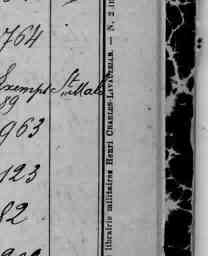 764
Exempt St Malo
89
963
123
82
librairie militaires Henri CHARLES-LAVAUZELLE. — N. 2